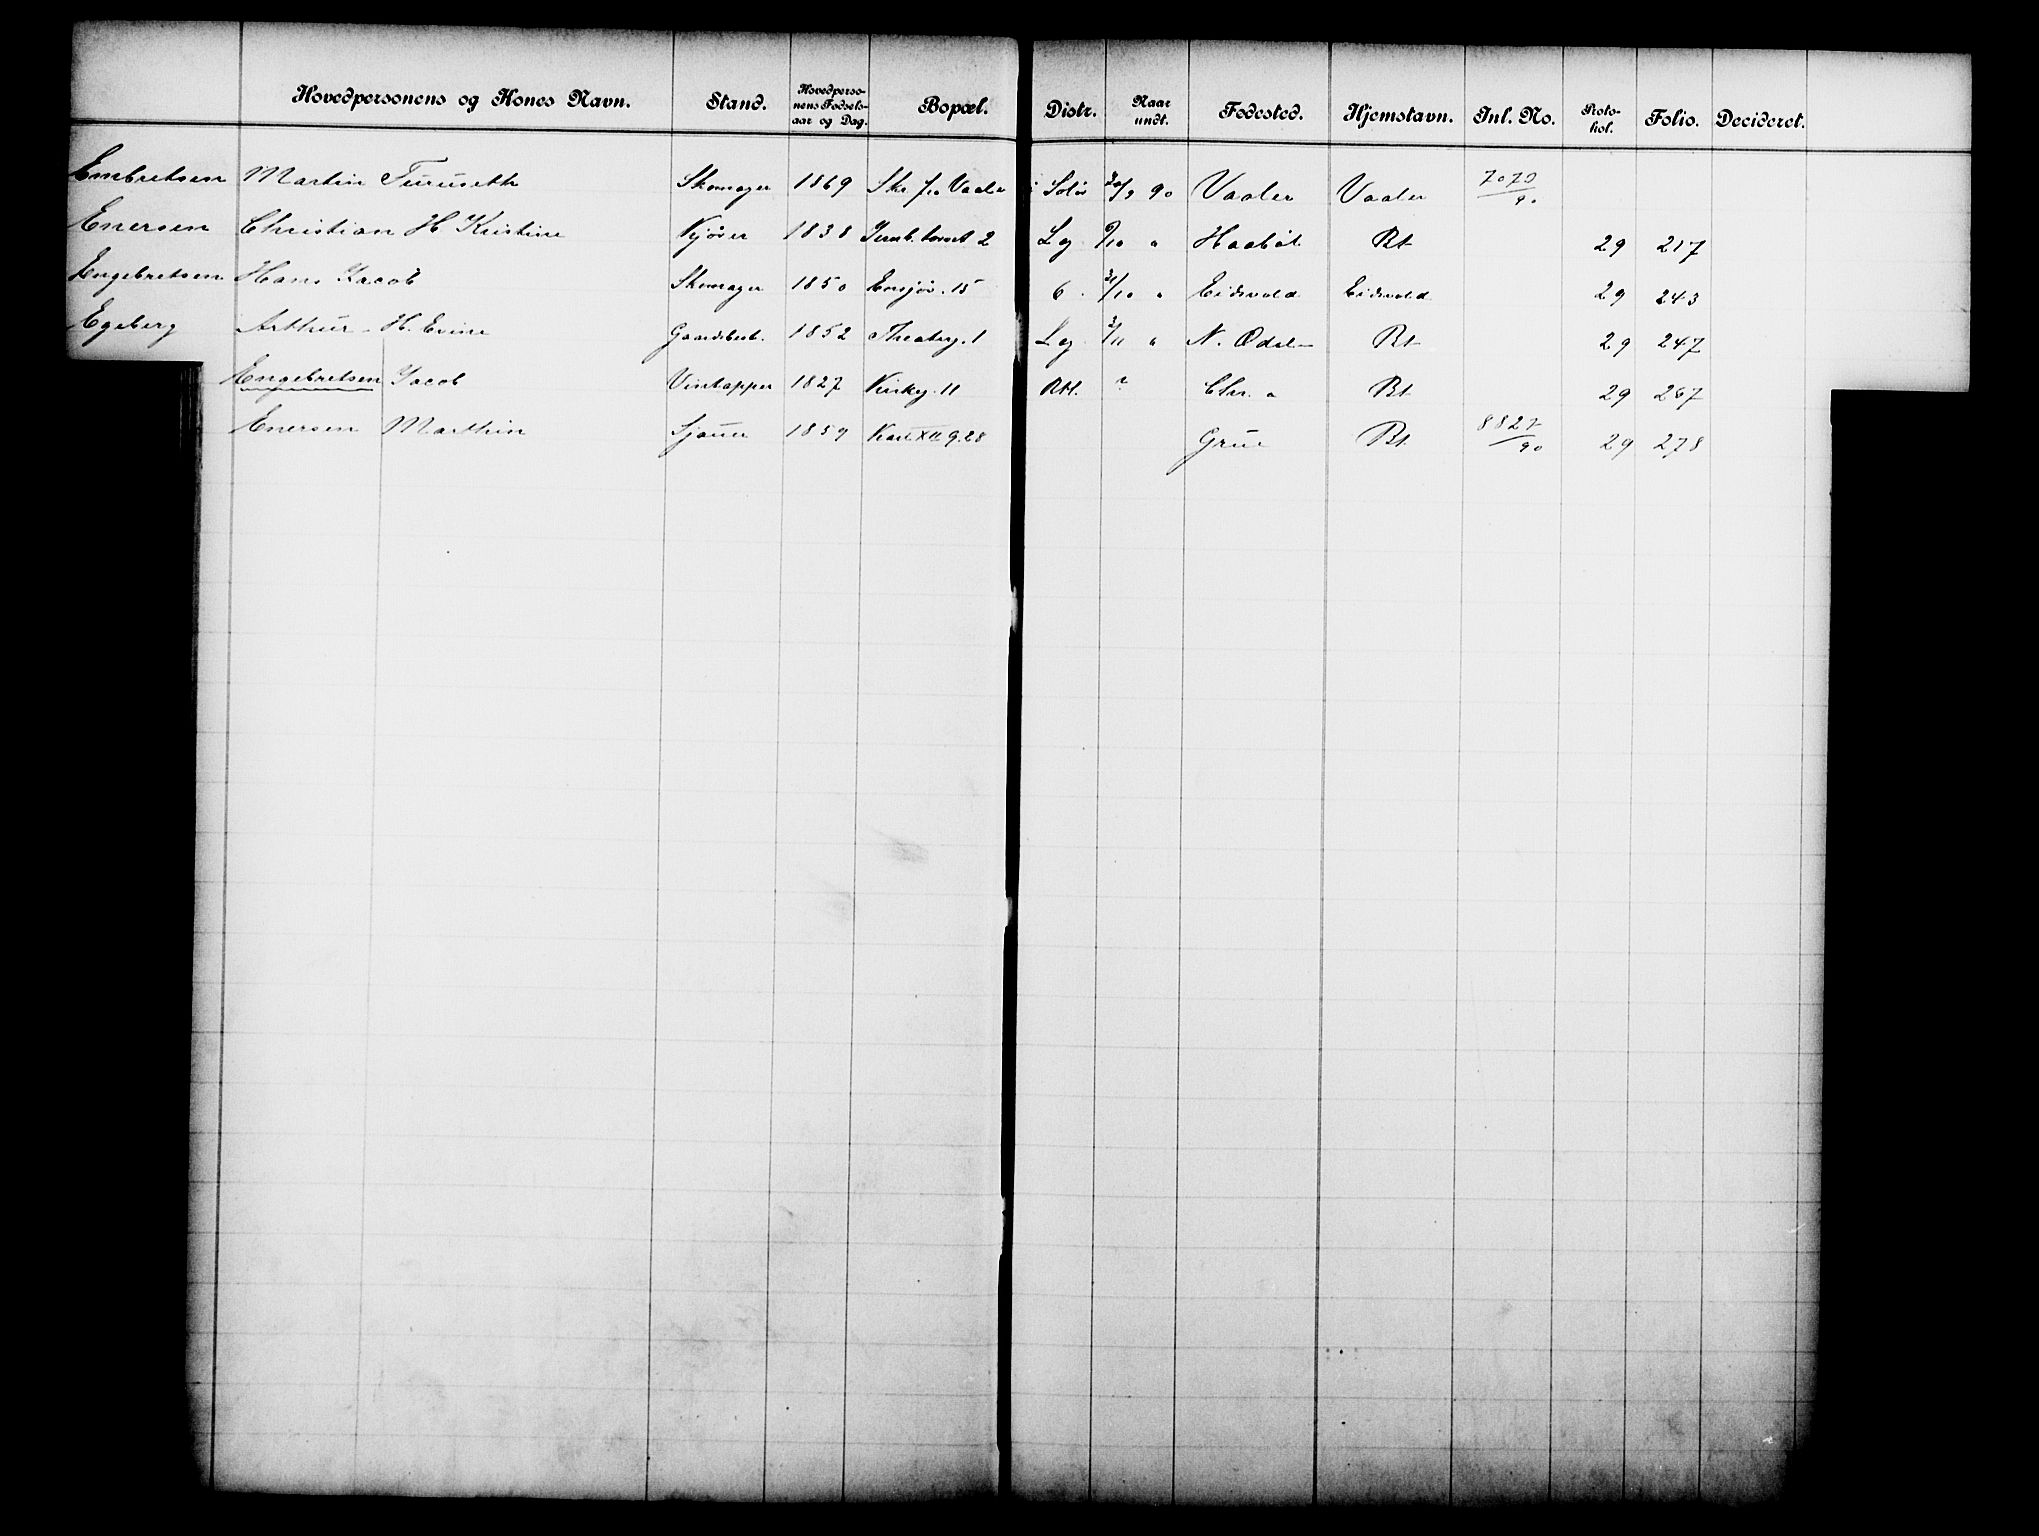 Hovedpersonens og Kones Navn. Stand. Hovedpersonens Fødselsaar og Dag. Bopæl. Distr. Naar undt. Fødested. Hjemstavn. Inl. No. Protokol. Folio. Decideret.
Embretsen Martin Furuseth Skomager 1869 Skr fra Vaaler i Solør 30/9 90 Vaaler Vaaler 7070/90
Enersen Christian H Kristine Kjører 1838 Jernb. torvet 2 Lg /10 " Haabøl Bt 29 217
Engebretsen Hans Jacob Skomager 1850 Ensjøv. 15 6 31/10 " Eidsvold Eidsvold 29 243
Egeberg Arthur H. Evine Gaardsbest. 1852 Theaterg. 1 Lg 3/11 " N. Odal Bt 29 247
Engebretsen Jacob Vintapper 1827 Kirkeg. 11 Chr. a Bt 29 267
Enersen Marthin Sjauer 1859 Karl XII g. 28 Grue Bt 8827/90 29 278